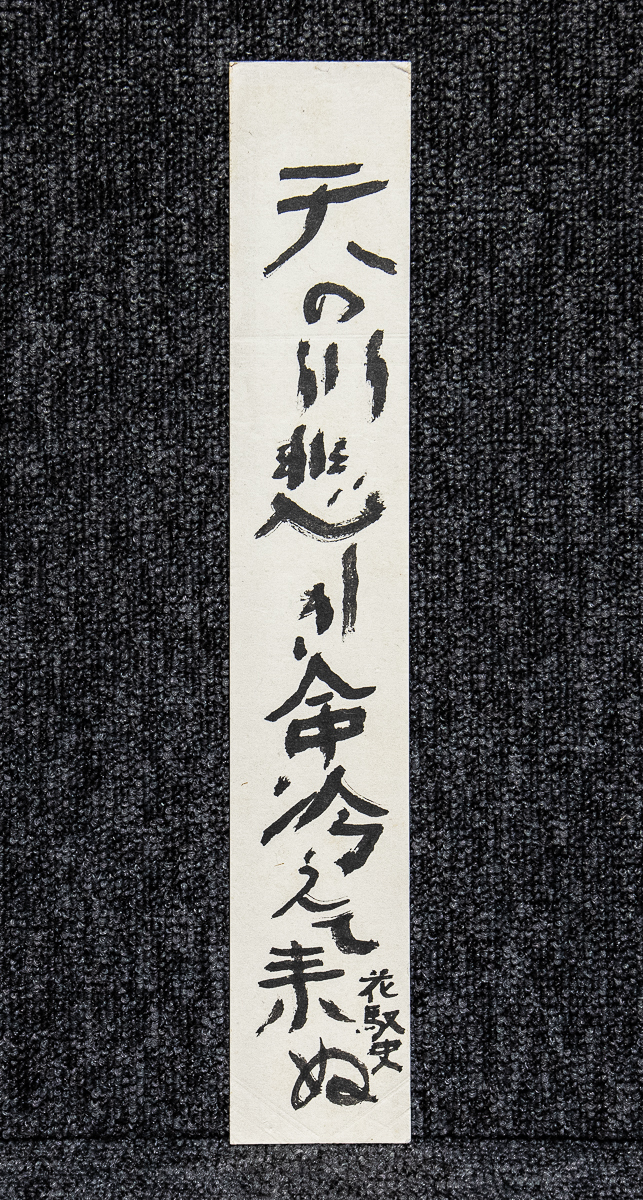 天の川悲 命冷えて来ぬ
花馭史